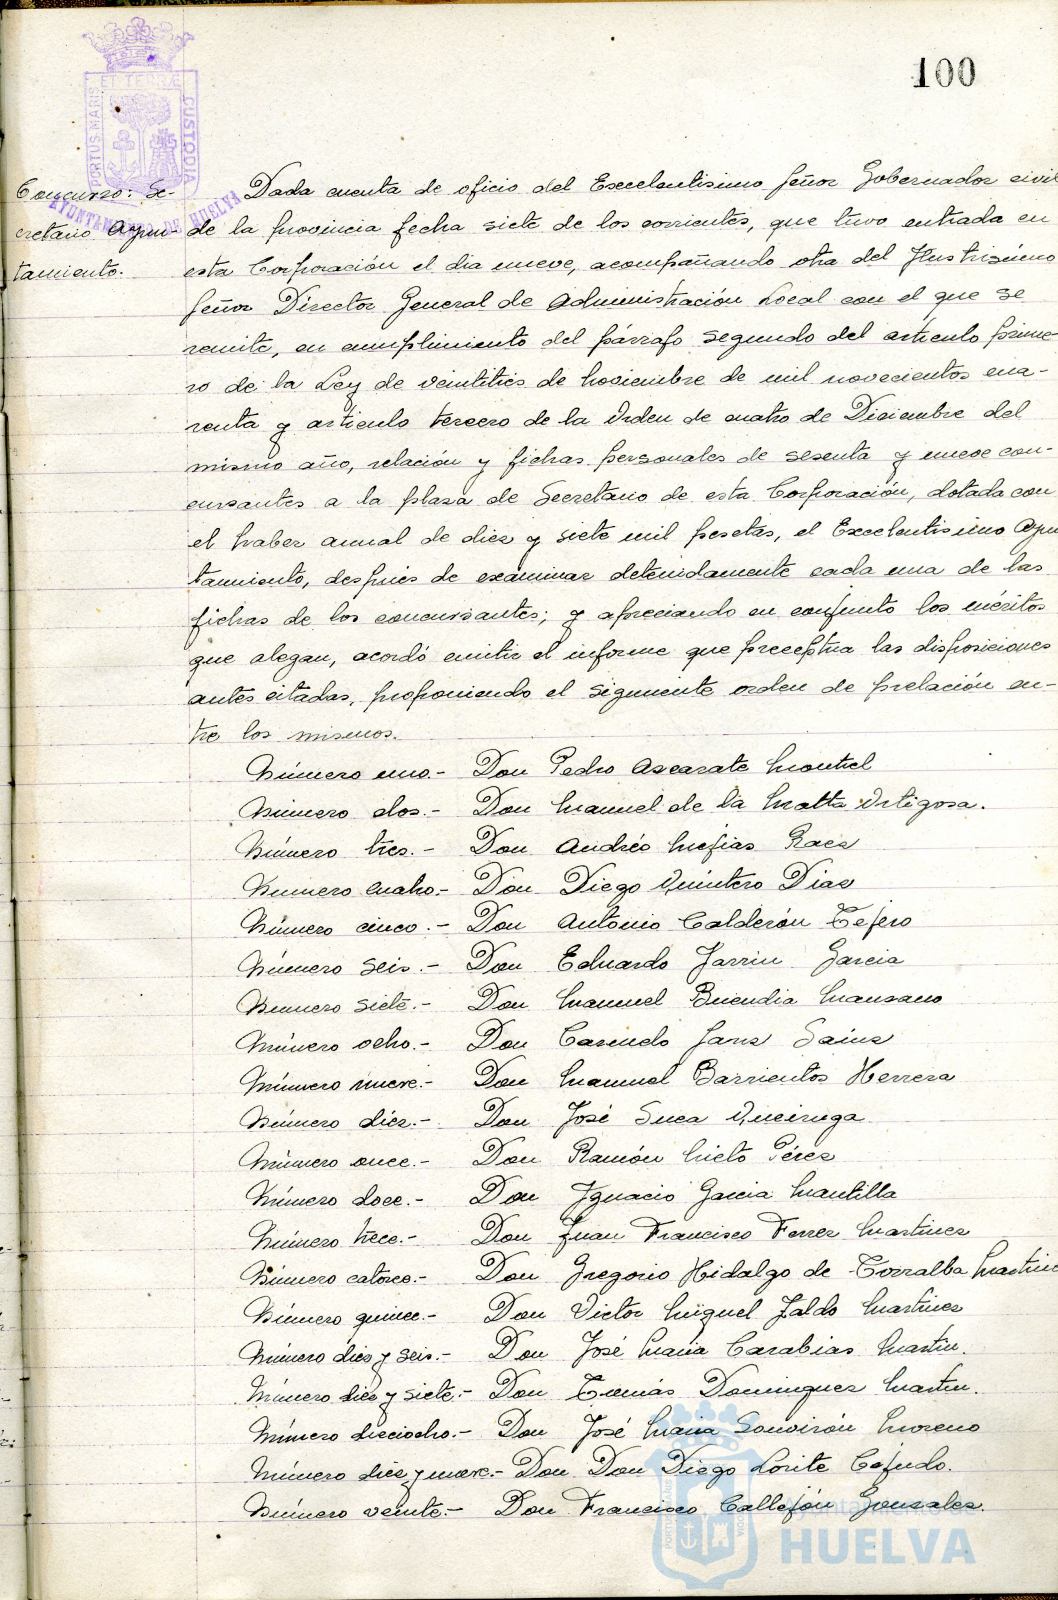 100
PORTUS MARIS ET TERRÆ CUSTODIA
AYUNTAMIENTO DE HUELVA
Concurso: Se-
cretario Ayun-
tamiento.
Dada cuenta de oficio del Excelentisimo Señor Gobernador civil
de la provincia fecha siete de los corrientes, que tuvo entrada en
esta Corporación el dia nueve, acompañando otra del Ilustrisimo
Señor Director General de Administración Local con el que se
remite, en cumplimiento del párrafo segundo del articulo prime-
ro de la Ley de veintitres de Noviembre de mil novecientos cua-
renta y articulo tercero de la Orden de cuatro de Diciembre del
mismo año, relación y fichas personales de sesenta y nueve con-
cursantes a la plaza de Secretario de esta Corporación, dotada con
el haber anual de diez y siete mil pesetas, el Excelentisimo Ayun
tamiento, despues de examinar detenidamente cada una de las
fichas de los concursantes; y apreciando en conjunto los méritos
que alegan, acordó emitir el informe que preceptua las disposiciones
antes citadas, proponiendo el siguiente orden de prelación en-
tre los mismos.
Número uno.- Don Pedro Ascarate Montiel
Número dos.- Don Manuel de la Matta Ortigosa.
Número tres.- Don Andrés Mejias Raez
Número cuatro.- Don Diego Quintero Diaz
Número cinco.- Don Antonio Calderón Tejero
Número seis.- Don Eduardo Jarrin Garcia
Número siete.- Don Manuel Buendia Manzano
Número ocho.- Don Casendo Sainz
Número nueve.- Don Manuel Barrientos Herrera
Número diez.- Don José Queiruga
Número once.- Don Ramón Nieto Pérez
Número doce.- Don Ignacio Garcia Mantilla
Número trece.- Don Juan Francisco Ferrer Martinez
Número catorce.- Don Gregorio Hidalgo de Torralba Martine
Número quince.- Don Victor Miguel Jaldo Martinez
Número diez y seis.- Don José Maria Carabias Martin.
Número diez y siete.- Don Tomás Dominguez Martin.
Número dieciocho.- Don José Maria Souvirón Moreno
Número diez y nueve.- Don Don Diego Lorite Cejudo.
Número veinte.- Don Francisco Callejón Gonzalez.
Ayuntamiento de
HUELVA